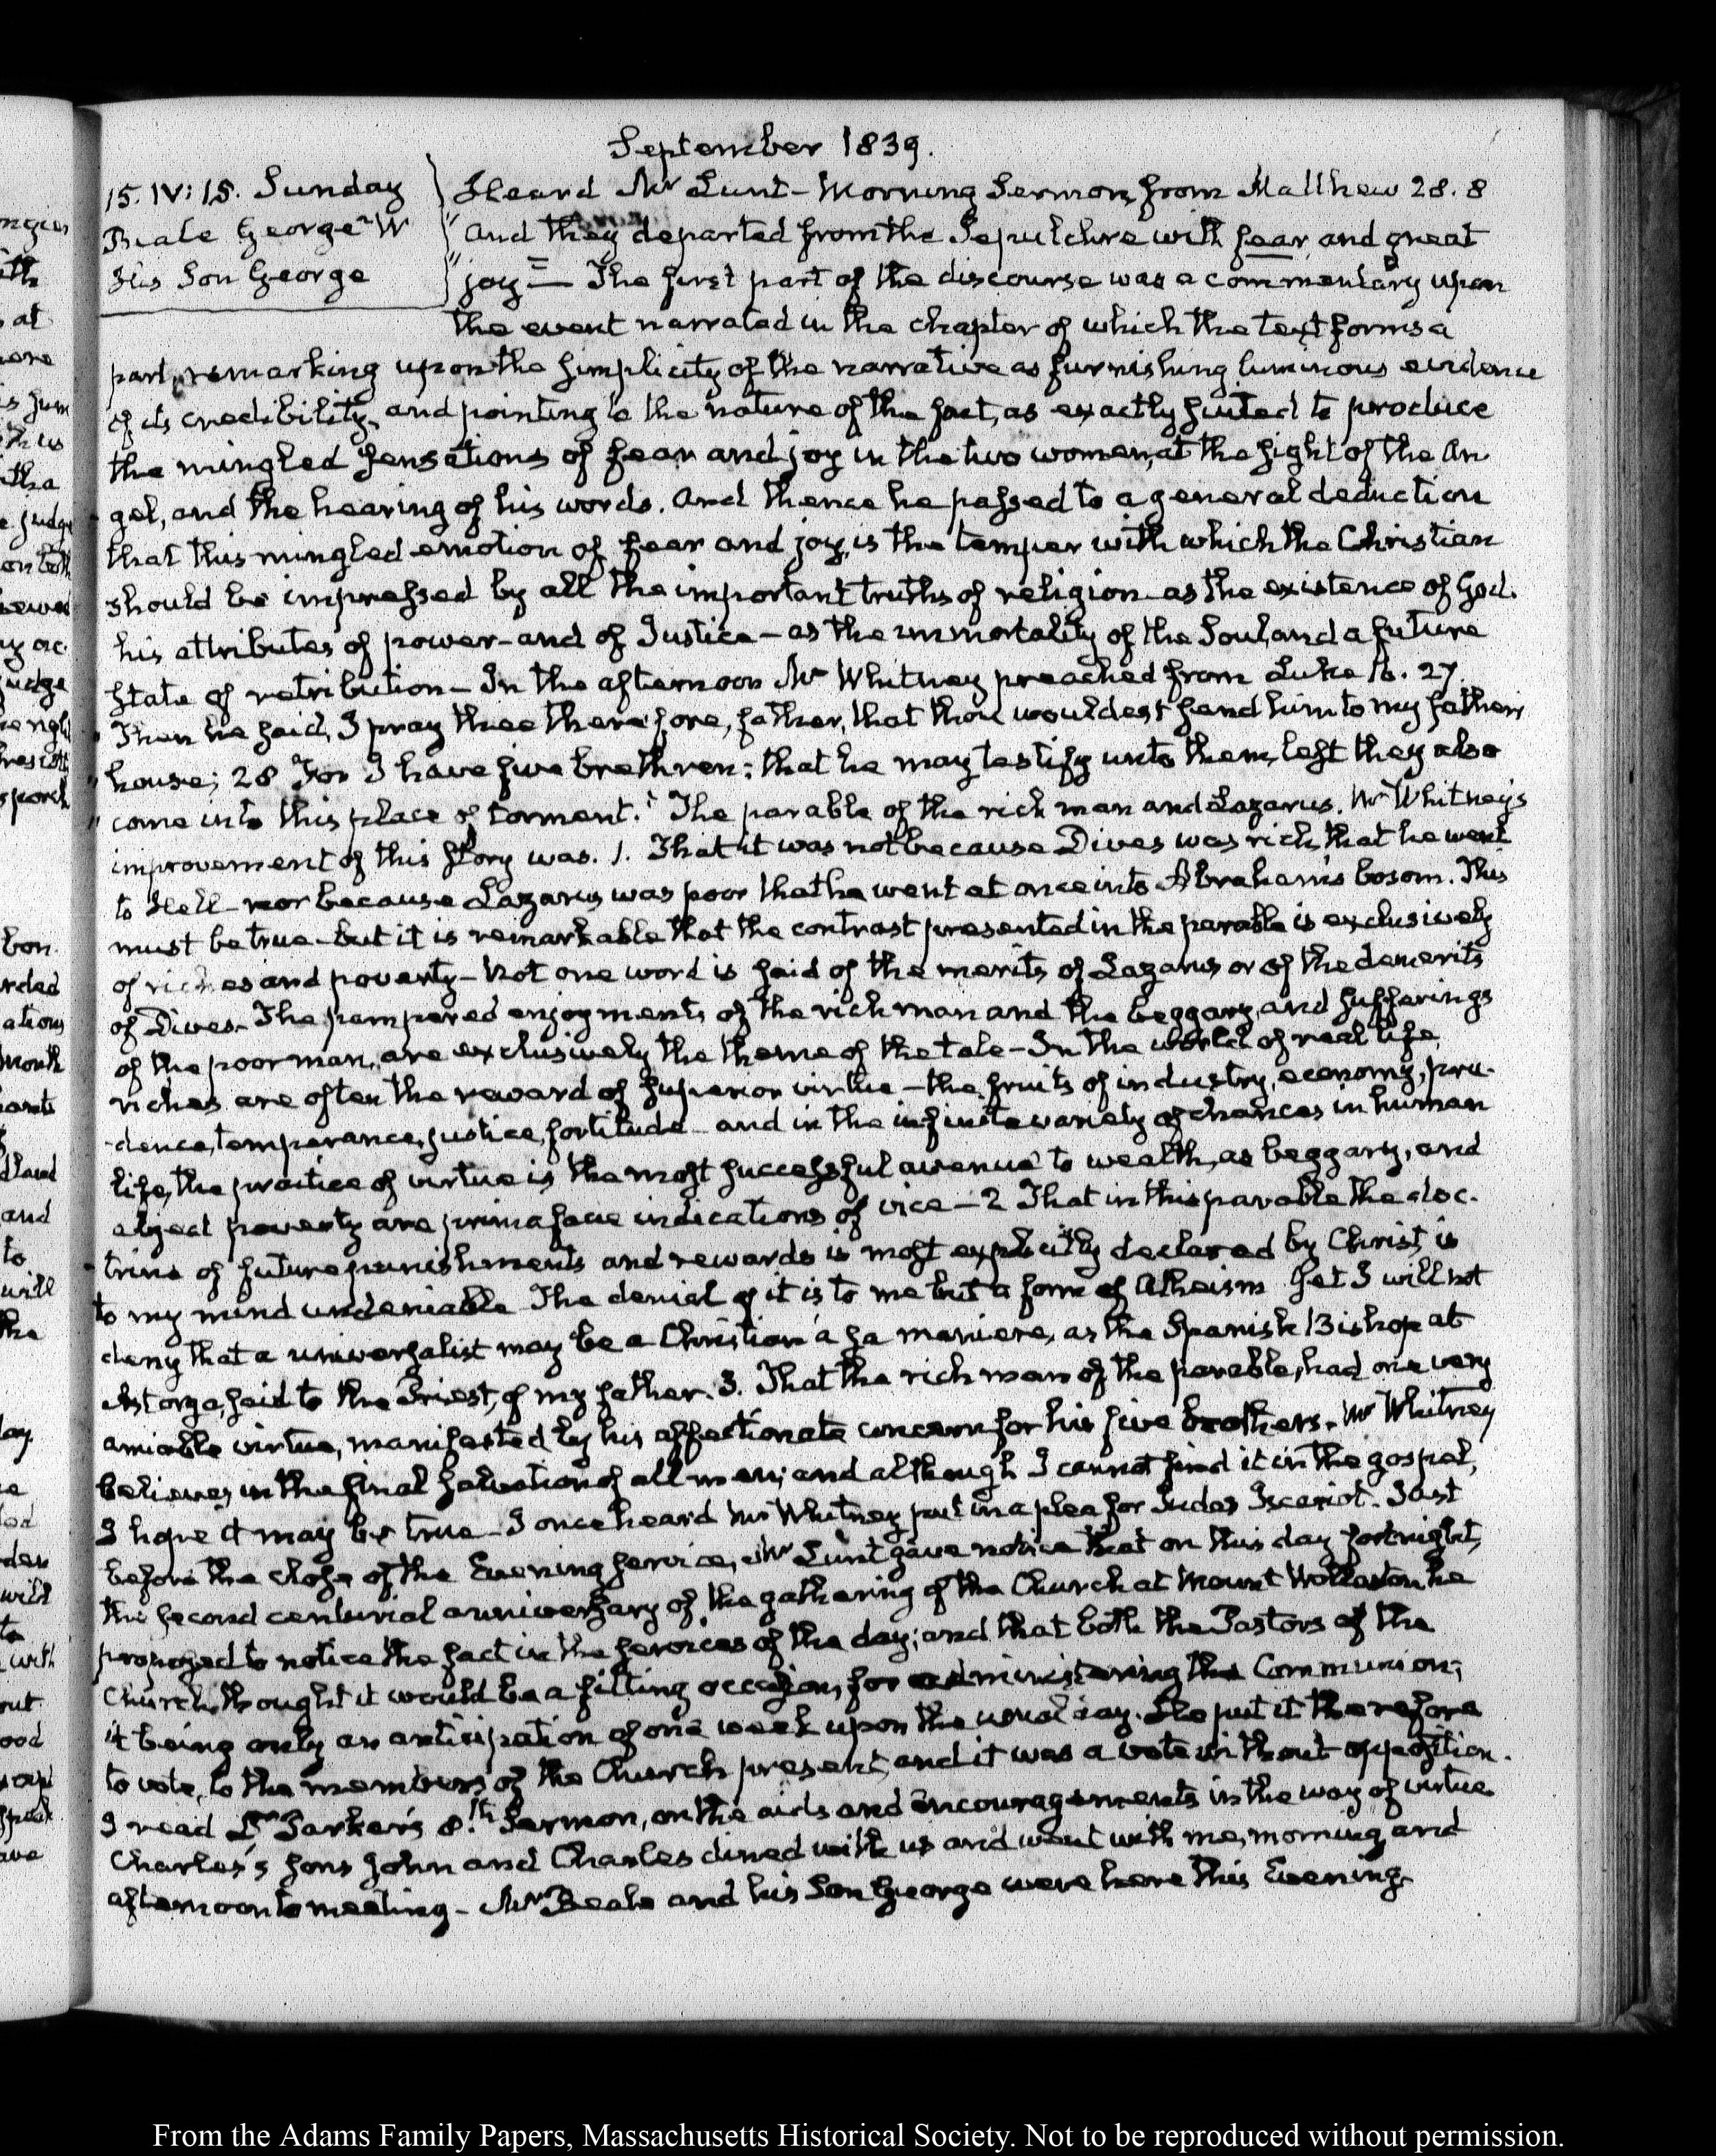 September 1839.
15. IV: 15. Sunday
Beale George W
His Son George
Heard Mr Lunt - Morning Sermon, from Matthew 28. 8
"And they departed from the Sepulchre with fear and great
"joy" — The first part of the discourse was a commentary upon
the event narrated in the chapter of which the text forms a
part, remarking upon the simplicity of the narrative as furnishing luminous evidence
of its credibility, and pointing to the nature of the fact, as exactly suited to produce
the mingled sensations of fear and joy in the two women, at the sight of the An
gel, and the hearing of his words. And thence he passed to a general deduction
that this mingled emotion of fear and joy, is the temper with which the Christian
should be impressed by all the important truths of religion as the existence of God.
his attributes of power - and of Justice - as the immortality of the Soul, and a future
state of retribution - In the afternoon Mr Whitney preached from Luke 16. 27.
"Then he said, I pray thee therefore, father, that thou wouldest send him to my father's
"house; 28 For I have five brethren; that he may testify unto them, lest they also
"come into this place of torment." The parable of the rich man and Lazarus. Mr Whitney's
improvement of this story was. 1. That it was not because Dives was rich, that he went
to Hell - nor because Lazarus was poor that he went at once into Abraham's bosom. This
must be true - but it is remarkable that the contrast presented in the parable is exclusively
of riches and poverty - Not one word is said of the merits of Lazarus or of the demerits
of Dives. The pampered enjoyments of the rich man and the beggary, and sufferings
of the poor man, are exclusively the theme of the tale - In the world of real life,
riches are often the reward of superior virtue - the fruits of industry, economy, pru-
-dence, temperance, justice, fortitude - and in the infinite variety of chances in human
life, the practice of virtue is the most successful avenue to wealth, as beggary, and
abject poverty are prima facie indications of vice - 2 That in this parable the doc-
-trine of future punishments and rewards is most explicitly declared by Christ is
to my mind undeniable The denial of it is to me but a form of Atheism Yet I will not
deny that a universalist may be a Christian à sa maniere, as the Spanish Bishop at
Astorga, said to the Priest, of my father. 3. That the rich man of the parable, had one very
amiable virtue, manifested by his affectionate concern for his five brothers. Mr Whitney
believes in the final salvation of all men; and although I cannot find it in the gospel,
I hope it may be true - I once heard Mr Whitney put in a plea for Judas Iscariot. Just
before the close of the Evening service, Mr Lunt gave notice that on this day fortnight,
the second centurial anniversary of the gathering of the Church at Mount Wollaston he
proposed to notice the fact in the services of the day; and that both the Pastors of the
Church, thought it would be a fitting occasion, for administering the Communion;
it being only an anticipation of one week upon the usual day. He put it therefore
to vote, to the members of the Church present, and it was a vote without opposition.
I read Dr Barker's 8th Sermon, on the aids and encouragements in the way of virtue
Charles's sons John and Charles dined with us and went with me, morning and
afternoon to meeting - Mr Beale and his Son George were here this Evening.
From the Adams Family Papers, Massachusetts Historical Society. Not to be reproduced without permission.